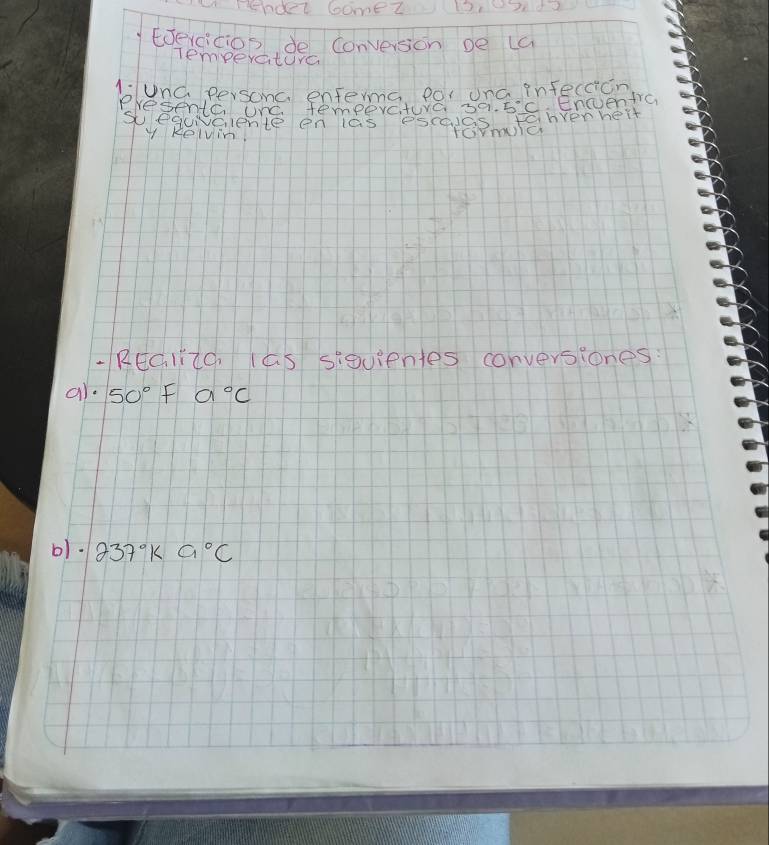 Hendez Gomez 13, 05, 25
Ejercicios de conversion De La
Temperatura
1: Una persona enferma por una infección
presenta una temperatura 39.5°C. Encuentra
su equivalente en las escalas Fahrenheit
y Kelvin. formula
- REaliza las siguientes conversiones:
a). 50° F a °C
b). 237°K a °C